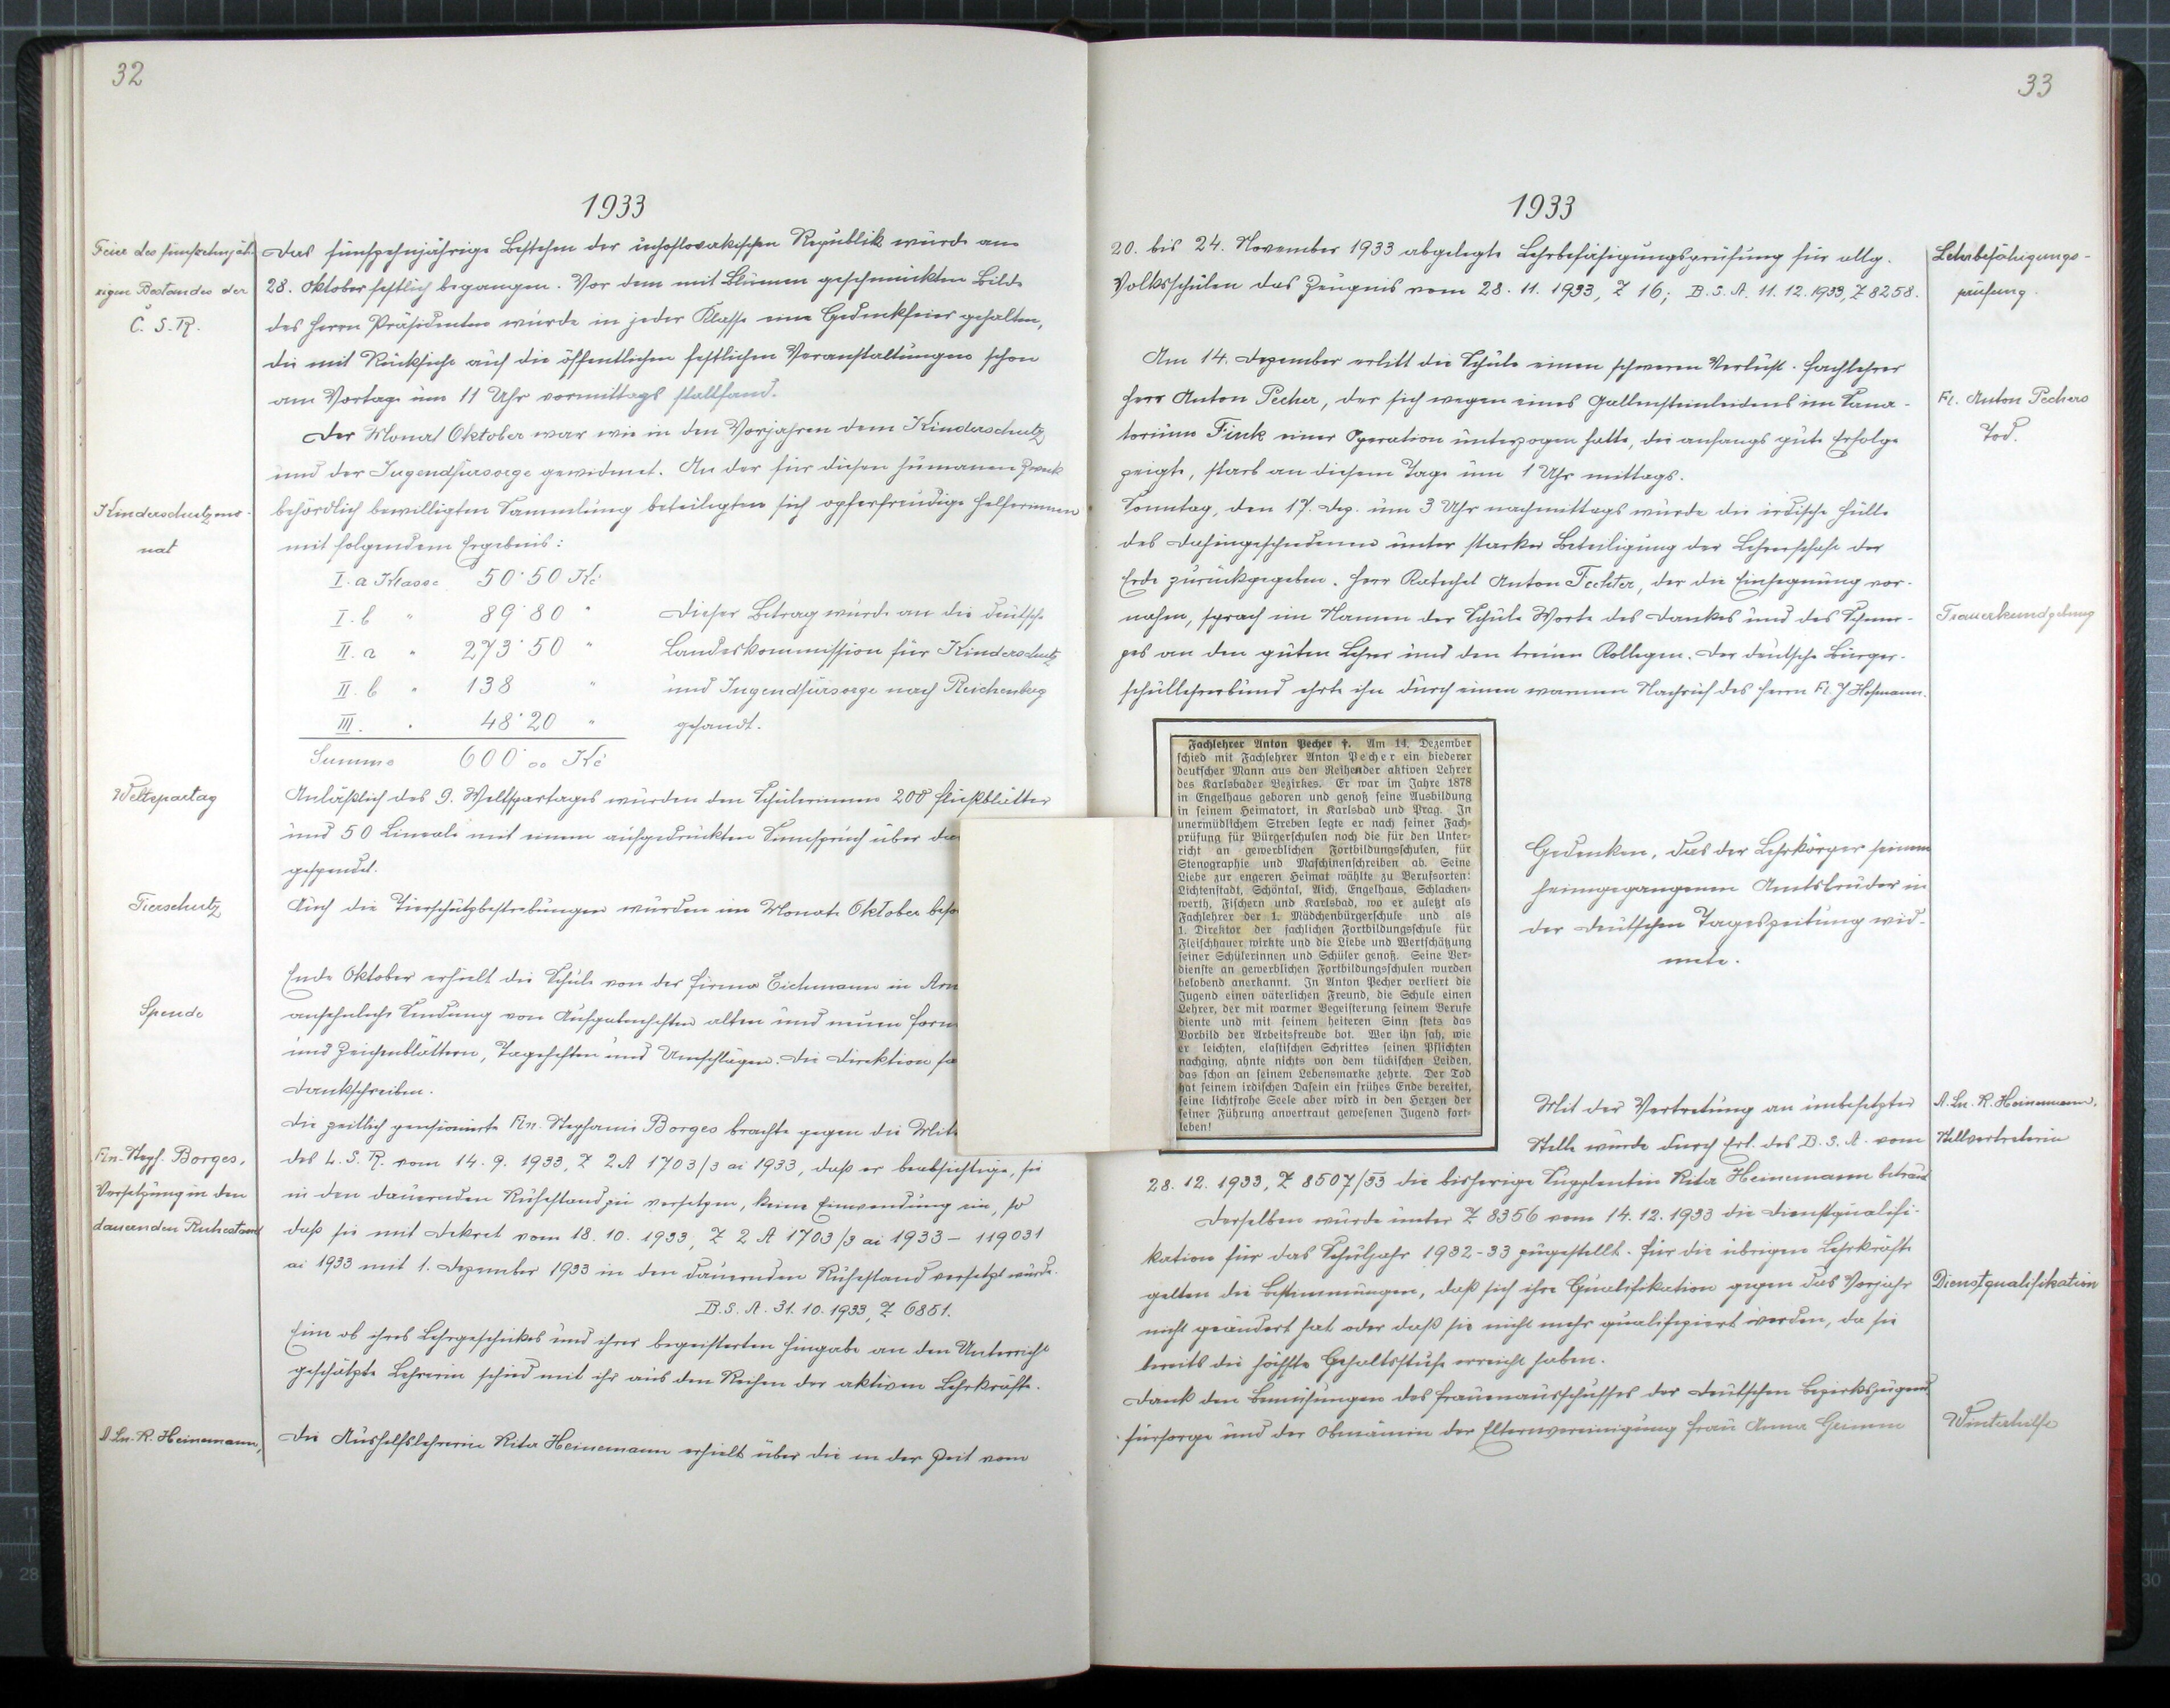 32
1933
Feier des fünfzehnjäh-
rigen Bestandes der
Č. S. R.
Das fünfzehnjährige Bestehen der čechoslovakischen Republik wurde am
28. Oktober festlich begangen. Vor dem mit Blumen geschmückten Bilde
des Herrn Präsidenten wurde in jeder Klasse eine Gedenkfeier gehalten,
die mit Rücksicht auf die öffentlichen festlichen Veranstaltungen schon
am Vortage um 11 Uhr vormittags stattfand.
Der Monat Oktober war wie in den Vorjahren dem Kinderschutz
und der Jugendfürsorge gewidmet. An der für diesen humanen Zweck
Kinderschutzmo-
nat
behördlich bewilligten Sammlung beteiligten sich opferfreudige Helferinnen
mit folgendem Ergebnis:
I. a Klasse 50·50 Kč
I. b " 89·80 " Dieser Betrag wurde an die deutsche
II. a " 273·50 " Landeskommission für Kinderschutz
II. b " 138 " und Jugendfürsorge nach Reichenberg
III. " 48·20 " gesandt.
Summe 600·00 Kč
Weltspartag
Anläßlich des 9. Weltspartages wurden den Schülerinnen 200 Fließblätter
und 50 Lineale mit einem aufgedruckten Sinnspruch über da
gespendet.
Tierschutz
Auch die Tierschutzbestrebungen wurden im Monate Oktober beso
Spende
Ende Oktober erhielt die Schule von der Firma Eichmann in Arn
ansehnliche Sendung von Aufgabenheften alten und neuen Form
und Zeichenblättern, Tageheften und Umschlägen. Die Direktion sa
Dankschreiben.
Die zeitlich pensionierte Fln. Stephanie Borges brachte gegen die Mit
Fln. Steph. Borges,
Versetzung in den
dauernden Ruhestand
des L. S. R. vom 14. 9. 1933, Z 2A 1703/3 ai 1933, daß er beabsichtige, sie
in den dauernden Ruhestand zu versetzen, keine Einwendung ein, so
daß sie mit Dekret vom 18. 10. 1933, Z 2 A 1703/3 ai 1933 – 119031
ai 1933 mit 1. Dezember 1933 in den dauernden Ruhestand versetzt wurde.
B. S. A. 31. 10. 1933, Z 6851.
Eine ob ihres Lehrgeschickes und ihrer begeisterten Hingabe an den Unterricht
geschätzte Lehrerin schied mit ihr aus den Reihen der aktiven Lehrkräfte.
A. Ln. R. Heinemann,
Die Aushilfslehrerin Rita Heinemann erhielt über die in der Zeit vom
33
1933
20. bis 24. November 1933 abgelegte Lehrbefähigungsprüfung für allg.
Volksschulen das Zeugnis vom 28. 11. 1933, Z 16; B. S. A. 11. 12. 1933, Z 8258.
Lehrbefähigungs-
prüfung.
Am 14. Dezember erlitt die Schule einen schweren Verlust. Fachlehrer
Herr Anton Pecher, der sich wegen eines Gallensteinleidens im Sana-
torium Fink einer Operation unterzogen hatte, die anfangs gute Erfolge
zeigte, starb an diesem Tage um 1 Uhr mittags.
Fl. Anton Pechers
Tod.
Sonntag, den 17. Dez. um 3 Uhr nachmittags wurde die irdische Hülle
des Dahingeschiedenen unter starker Beteiligung der Lehrerschaft der
Erde zurückgegeben. Herr Katechet Anton Fechter, der die Einsegnung vor-
nahm, sprach im Namen der Schule Worte des Dankes und des Schmer-
zes an den guten Lehrer und den treuen Kollegen. Der deutsche Bürger-
schullehrerbund ehrte ihn durch einen warmen Nachruf des Herrn Fl. J. Hofmann.
Trauerkundgebung
Fachlehrer Anton Pecher †. Am 14. Dezember
schied mit Fachlehrer Anton Pecher ein biederer
deutscher Mann aus den Reihen der aktiven Lehrer
des Karlsbader Bezirkes. Er war im Jahre 1878
in Engelhaus geboren und genoß seine Ausbildung
in seinem Heimatort, in Karlsbad und Prag. In
unermüdlichem Streben legte er nach seiner Fach-
prüfung für Bürgerschulen noch die für den Unter-
richt an gewerblichen Fortbildungsschulen, für
Stenographie und Maschinenschreiben ab. Seine
Liebe zur engeren Heimat wählte zu Berufsorten:
Lichtenstadt, Schöntal, Aich, Engelhaus, Schlacken-
werth, Fischern und Karlsbad, wo er zuletzt als
Fachlehrer der 1. Mädchenbürgerschule und als
1. Direktor der fachlichen Fortbildungsschule für
Fleischhauer wirkte und die Liebe und Wertschätzung
seiner Schülerinnen und Schüler genoß. Seine Ver-
dienste an gewerblichen Fortbildungsschulen wurden
belobend anerkannt. In Anton Pecher verliert die
Jugend einen väterlichen Freund, die Schule einen
Lehrer, der mit warmer Begeisterung seinem Berufe
diente und mit seinem heiteren Sinn stets das
Vorbild der Arbeitsfreude bot. Wer ihn sah, wie
er leichten, elastischen Schrittes seinen Pflichten
nachging, ahnte nichts von dem tückischen Leiden,
das schon an seinem Lebensmarke zehrte. Der Tod
hat seinem irdischen Dasein ein frühes Ende bereitet,
seine lichtfrohe Seele aber wird in den Herzen der
seiner Führung anvertraut gewesenen Jugend fort-
leben!
Gedenken, das der Lehrkörper seinem
heimgegangenen Amtsbruder in
der Deutschen Tageszeitung wid-
mete.
Mit der Vertretung an unbesetzter
Stelle wurde durch Erl. des B. S. A. vom
28. 12. 1933, Z 8507/33 die bisherige Supplentin Rita Heinemann betraut
A. Ln. R. Heinemann,
Stellvertreterin
Derselben wurde unter Z 8356 vom 14. 12. 1933 die Dienstqualifi-
kation für das Schuljahr 1932-33 zugestellt. Für die übrigen Lehrkräfte
gelten die Bestimmungen, daß sich ihre Qualifikation gegen das Vorjahr
nicht geändert hat oder daß sie nicht mehr qualifiziert werden, da sie
bereits die höchste Gehaltsstufe erreicht haben.
Dienstqualifikation
Dank den Bemühungen des Frauenausschusses der deutschen Bezirksjugend-
fürsorge und der Obmännin der Elternvereinigung Frau Anna Grimm
Winterhilfe